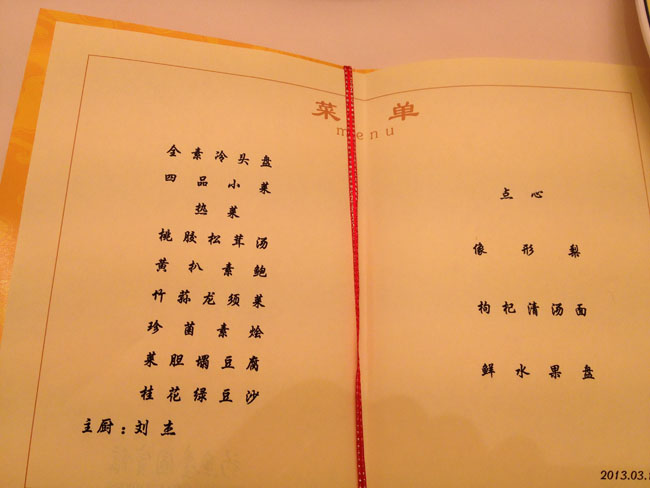 菜 单
menu
全素冷头盘
四品小菜
热菜
桃胶松茸汤
黄扒素鲍
竹荪龙须菜
珍菌素烩
菜胆塌豆腐
桂花绿豆沙
主厨：刘杰
点心
像形梨
枸杞清汤面
鲜水果盘
2013.03.